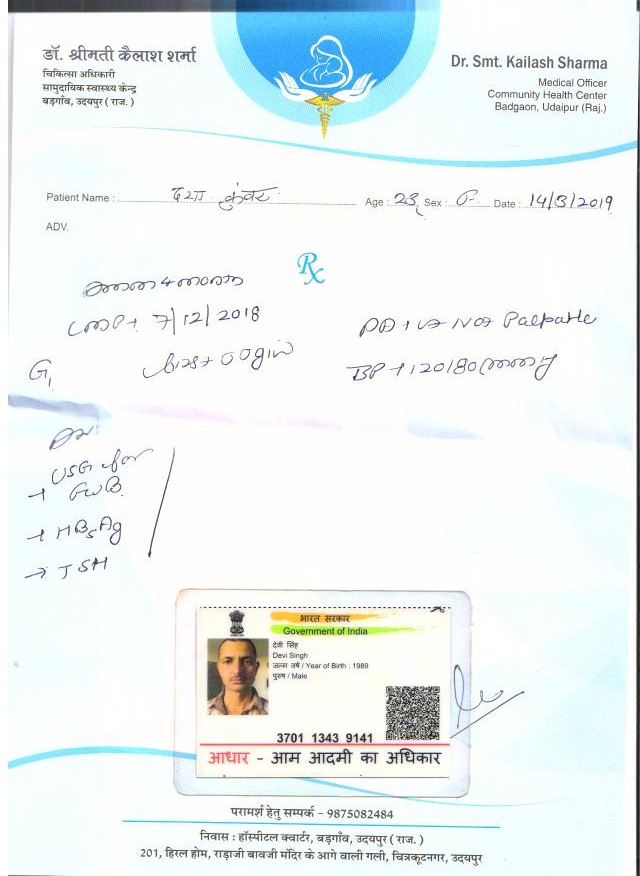 डॉ. श्रीमती कैलाश शर्मा
चिकित्सा अधिकारी
सामुदायिक स्वास्थ्य केन्द्र
बड़गाँव, उदयपुर ( राज. )
Dr. Smt. Kailash Sharma
Medical Officer
Community Health Center
Badgaon, Udaipur (Raj.)
Patient Name : कुंवर Age : 23 Sex : F Date : 14/3/2019
ADV.
Rx
LMP 7/12/2018
PA Not Palpable
G1
BP → 120/80
USG for
→ HBsAg
→ TSH
भारत सरकार
Government of India
देवी सिंह
Devi Singh
जन्म वर्ष / Year of Birth : 1989
पुरुष / Male
3701 1343 9141
आधार - आम आदमी का अधिकार
परामर्श हेतु सम्पर्क - 9875082484
निवास : हॉस्पीटल क्वार्टर, बड़गाँव, उदयपुर ( राज. )
201, हिरल होम, राड़ाजी बावजी मंदिर के आगे वाली गली, चित्रकूटनगर, उदयपुर